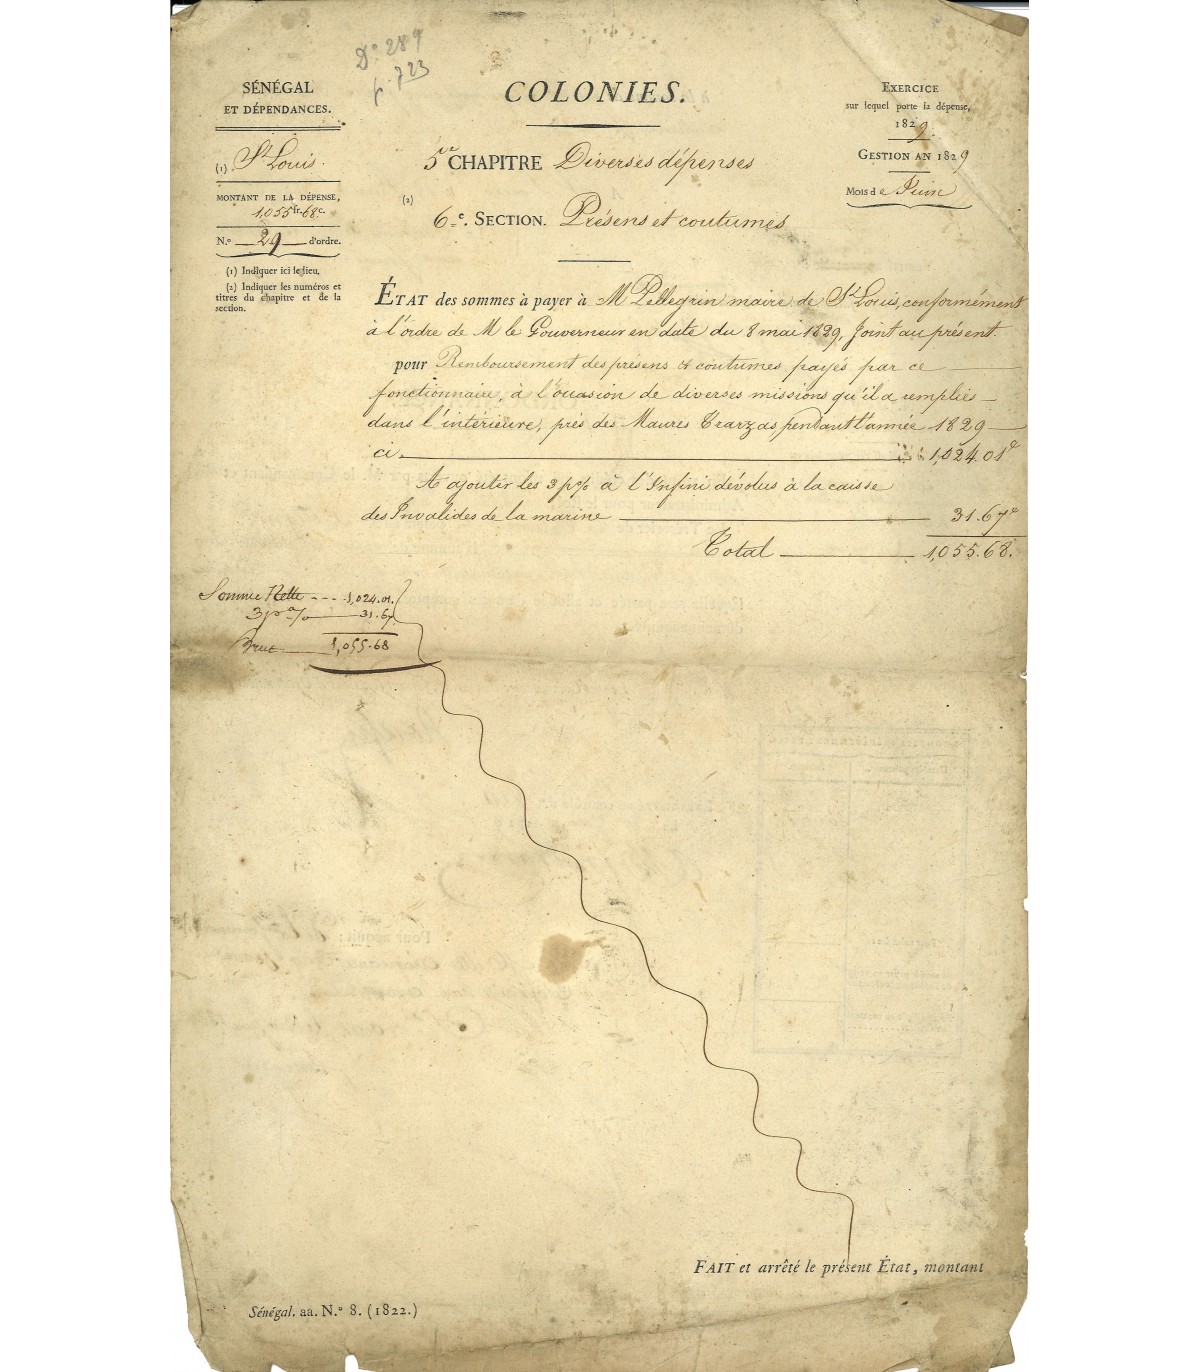 Dº 289
f. 723
SÉNÉGAL
ET DÉPENDANCES.
(1) St Louis.
MONTANT DE LA DÉPENSE,
1,055 fr. 68 c.
N.º 29 d'ordre.
(1) Indiquer ici le lieu.
(2) Indiquer les numéros et
titres du chapitre et de la
section.
COLONIES.
5e CHAPITRE Diverses dépenses
(2)
6e. SECTION. Présens et coutumes
EXERCICE
sur lequel porte la dépense,
1829.
GESTION AN 1829
MOIS de Juin
ÉTAT des sommes à payer à M Pellegrin maire de St Louis, conformément
à l'ordre de M le Gouverneur en date du 8 mai 1829, Joint au présent.
pour Remboursement des présens & coutumes payés par ce
fonctionnaire, à l'occasion de diverses missions qu'il a remplies
dans l'intérieure, près des Maures Trarzas pendant l'année 1829
ci 1,024.01c
A ajouter les 3 p% à l'Infini dévolus à la caisse
des Invalides de la marine 31.67c
Total 1,055.68.
Somme Nette 1,024.01.
3 p% 31.67
Brut 1,055.68
FAIT et arrêté le présent État, montant
Sénégal. aa. N.º 8. (1822.)